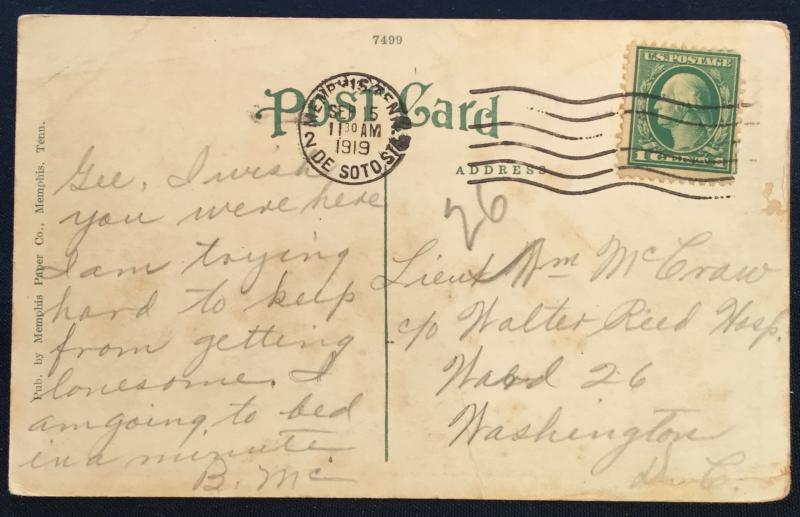 7499
Post Card
U.S. POSTAGE
1 CENT 1
MEMPHIS, TENN.
SEP 15
11 30 AM
1919
2 DE SOTO STA.
ADDRESS
Pub. by Memphis Paper Co., Memphis, Tenn.
Gee, I wish
you were here
I am trying
hard to keep
from getting
lonesome. I
am going to bed
in a minute
B. Mc
26
Lieut Wm McCraw
c/o Walter Reed Hosp.
Ward 26
Washington
D. C.